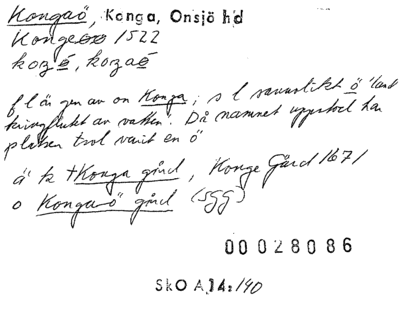 Kongaö, Konga, Onsjö hd
Kongeöö 1522
kozé, kozaé
f l är gen av on Konga; s l sannolikt ö 'land
kringflutet av vatten'. Då namnet uppstod har
platsen trol varit en ö
ä k †Konga gård, Konge Gård 1671
o Kongaö gård (sgg)
00028086
SkO A 14:140